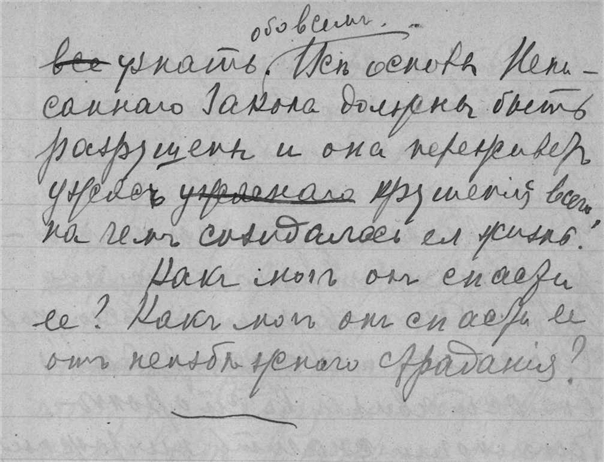 обо всемъ.
все узнать. Всѣ основы Непи-
саннаго Закона должны быть
разрушены и она переживетъ
ужасъ ужаснаго крушенія всего,
на чемъ созидалась ея жизнь!
Какъ могъ онъ спасти
ее? Какъ могъ онъ спасти ее
отъ неизбѣжнаго страданія?